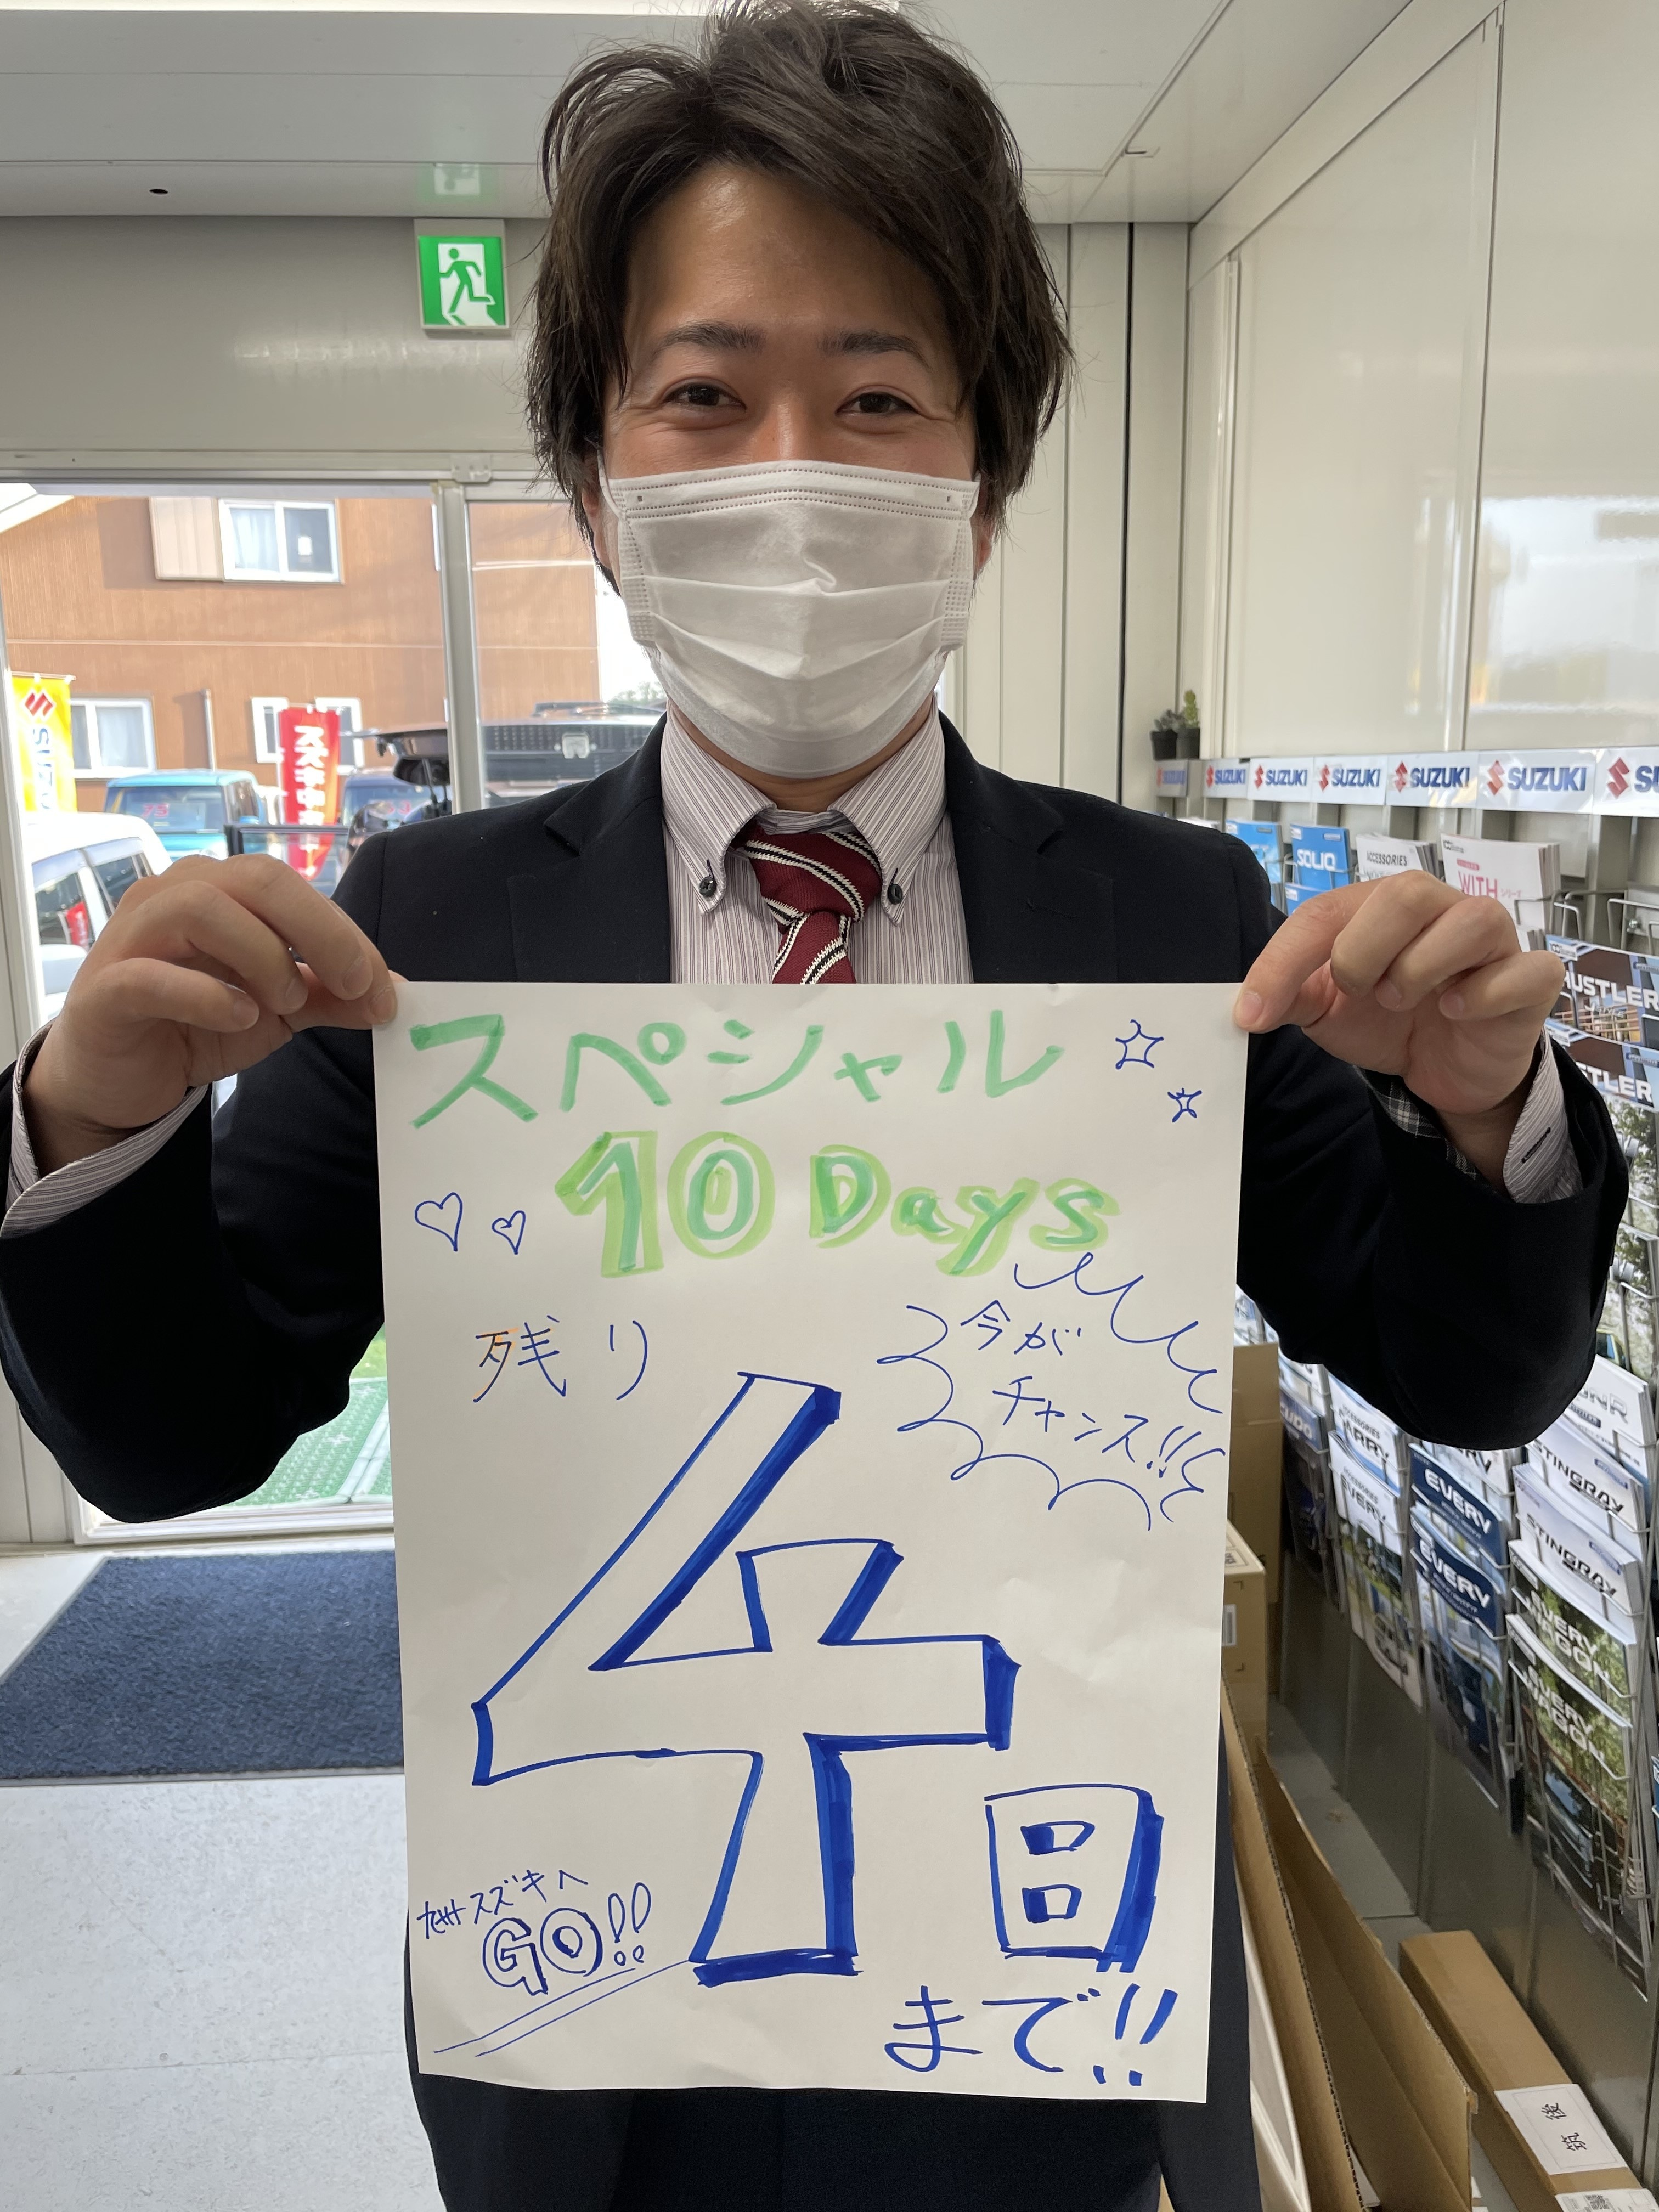 スペシャル
10 Days
残り
今が
チャンス!!
4日
まで!!
九州スズキへ
GO!!
SUZUKI
スズキ
SUZUKI
SUZUKI
SUZUKI
SUZUKI
SUZUKI
SUZUKI
SOLIO
ACCESSORIES
WITH シリーズ
HUSTLER
EVERY
EVERY
EVERY
STINGRAY
STINGRAY
EVERY
WAGON
EVERY
WAGON
筑後